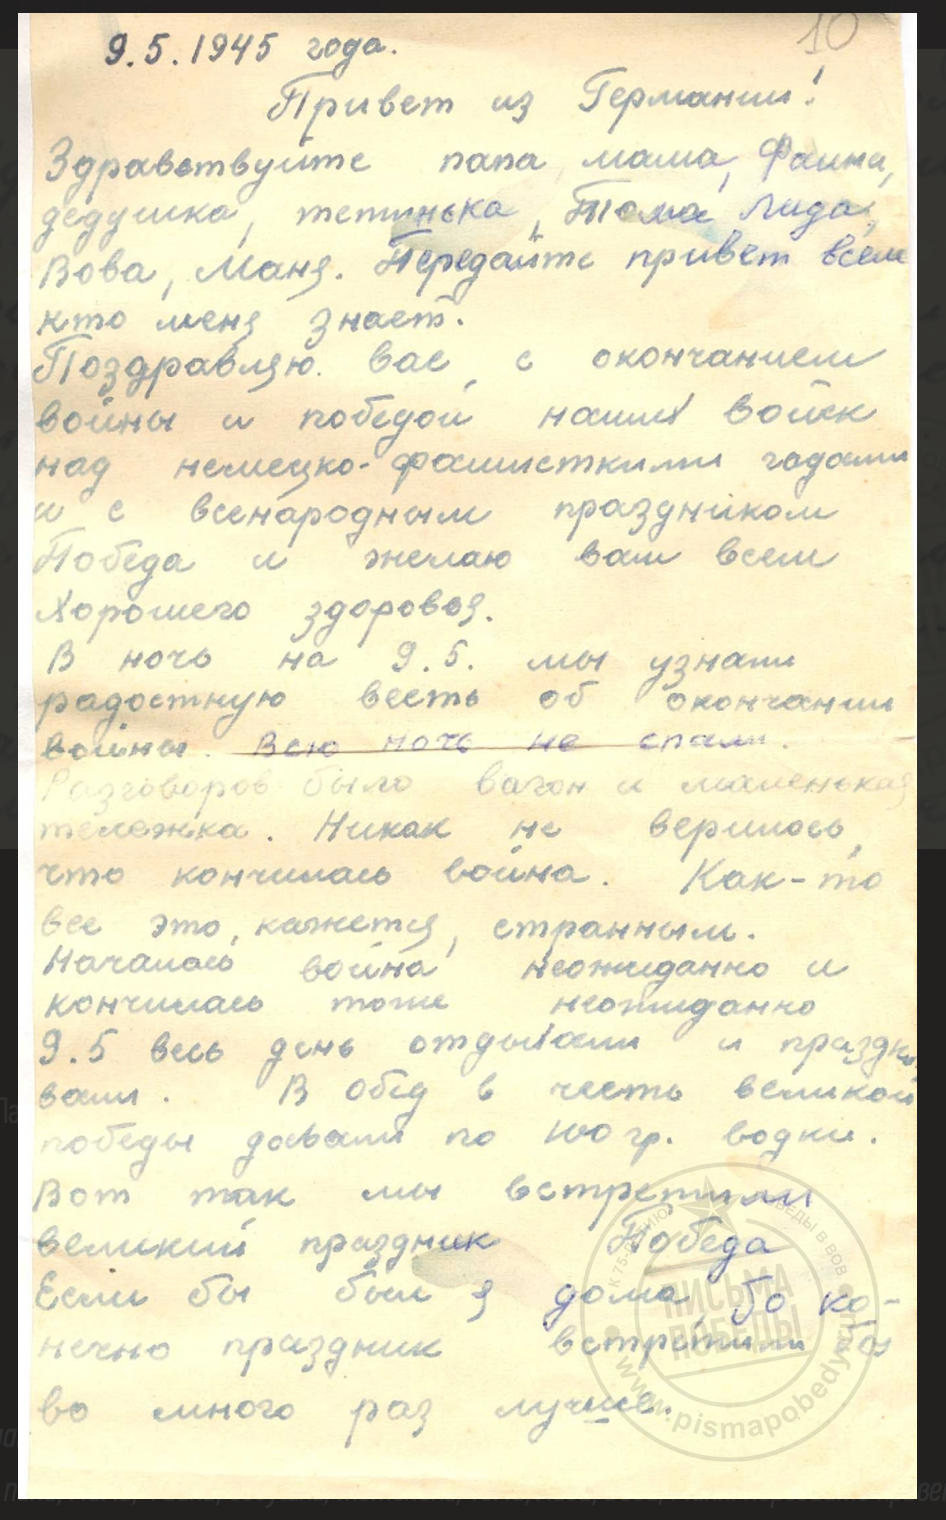 10
9.5.1945 года.
Привет из Германии!
Здравствуйте папа, мама, Фаина,
дедушка, тетинька, Тома Лида,
Вова, Маня. Передайте привет всем
кто меня знает.
Поздравляю вас с окончанием
войны и победой наших войск
над немецко-фашисткими гадами
и с всенародным праздником
Победа и желаю вам всем
хорошего здоровья.
В ночь на 9.5. мы узнали
радостную весть об окончании
войны. Всю ночь не спали.
Разговоров было вагон и маленькая
тележка. Никак не верилось,
что кончилась война. Как-то
все это, кажется, странным.
Началась война неожиданно и
кончилась тоже неожиданно
9.5 весь день отдыхали и праздно
вали. В обед в честь великой
победы давали по 100 гр. водки.
Вот так мы встретили
великий праздник Победа
Если бы был я дома бо ко-
нечно праздник встретили бы
во много раз лучше.
К 75-ЛЕТИЮ ПОБЕДЫ В ВОВ
ПИСЬМА
ПОБЕДЫ
www.pismapobedy.ru